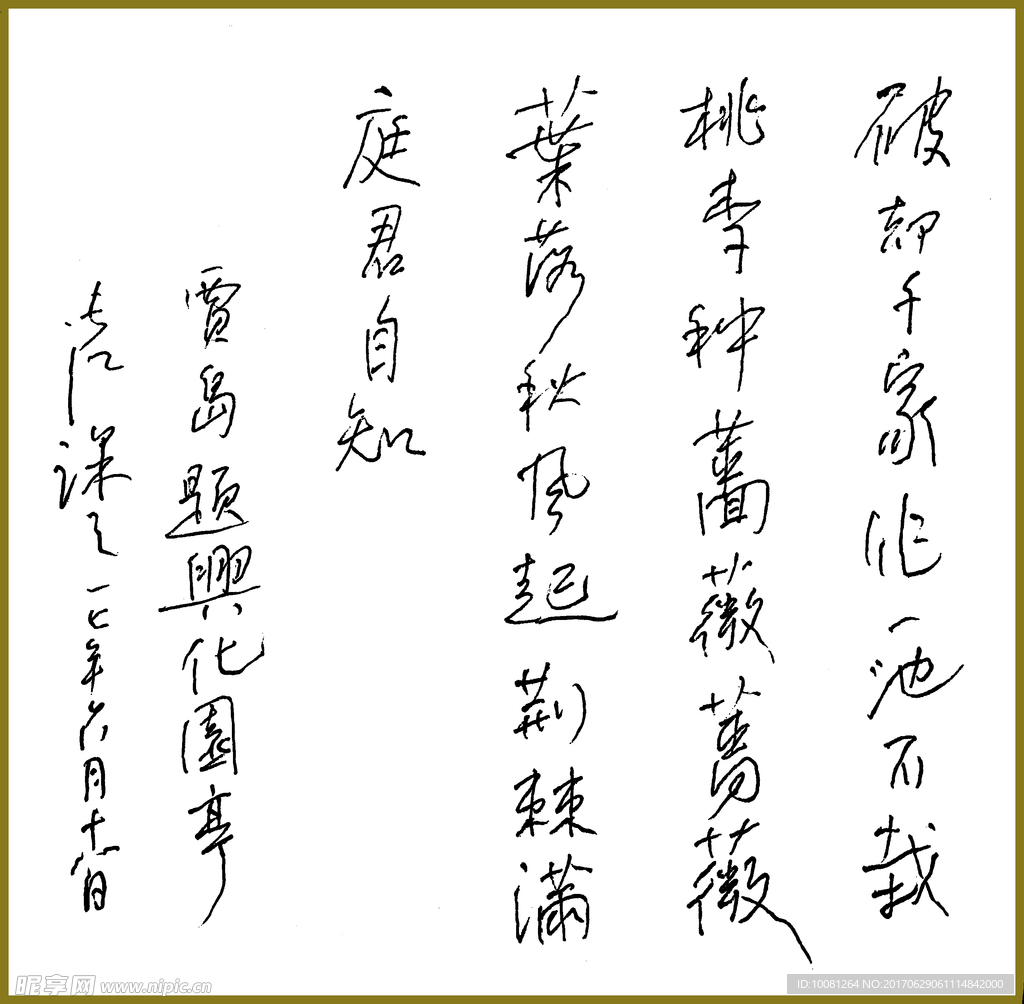 破却千家作一池不栽
桃李种薔薇薔薇
葉落秋风起荆棘满
庭君自知
賈島题興化園亭
课 一七年六月十日
昵享网 www.nipic.cn
ID:10081264 NO:20170629061114842000